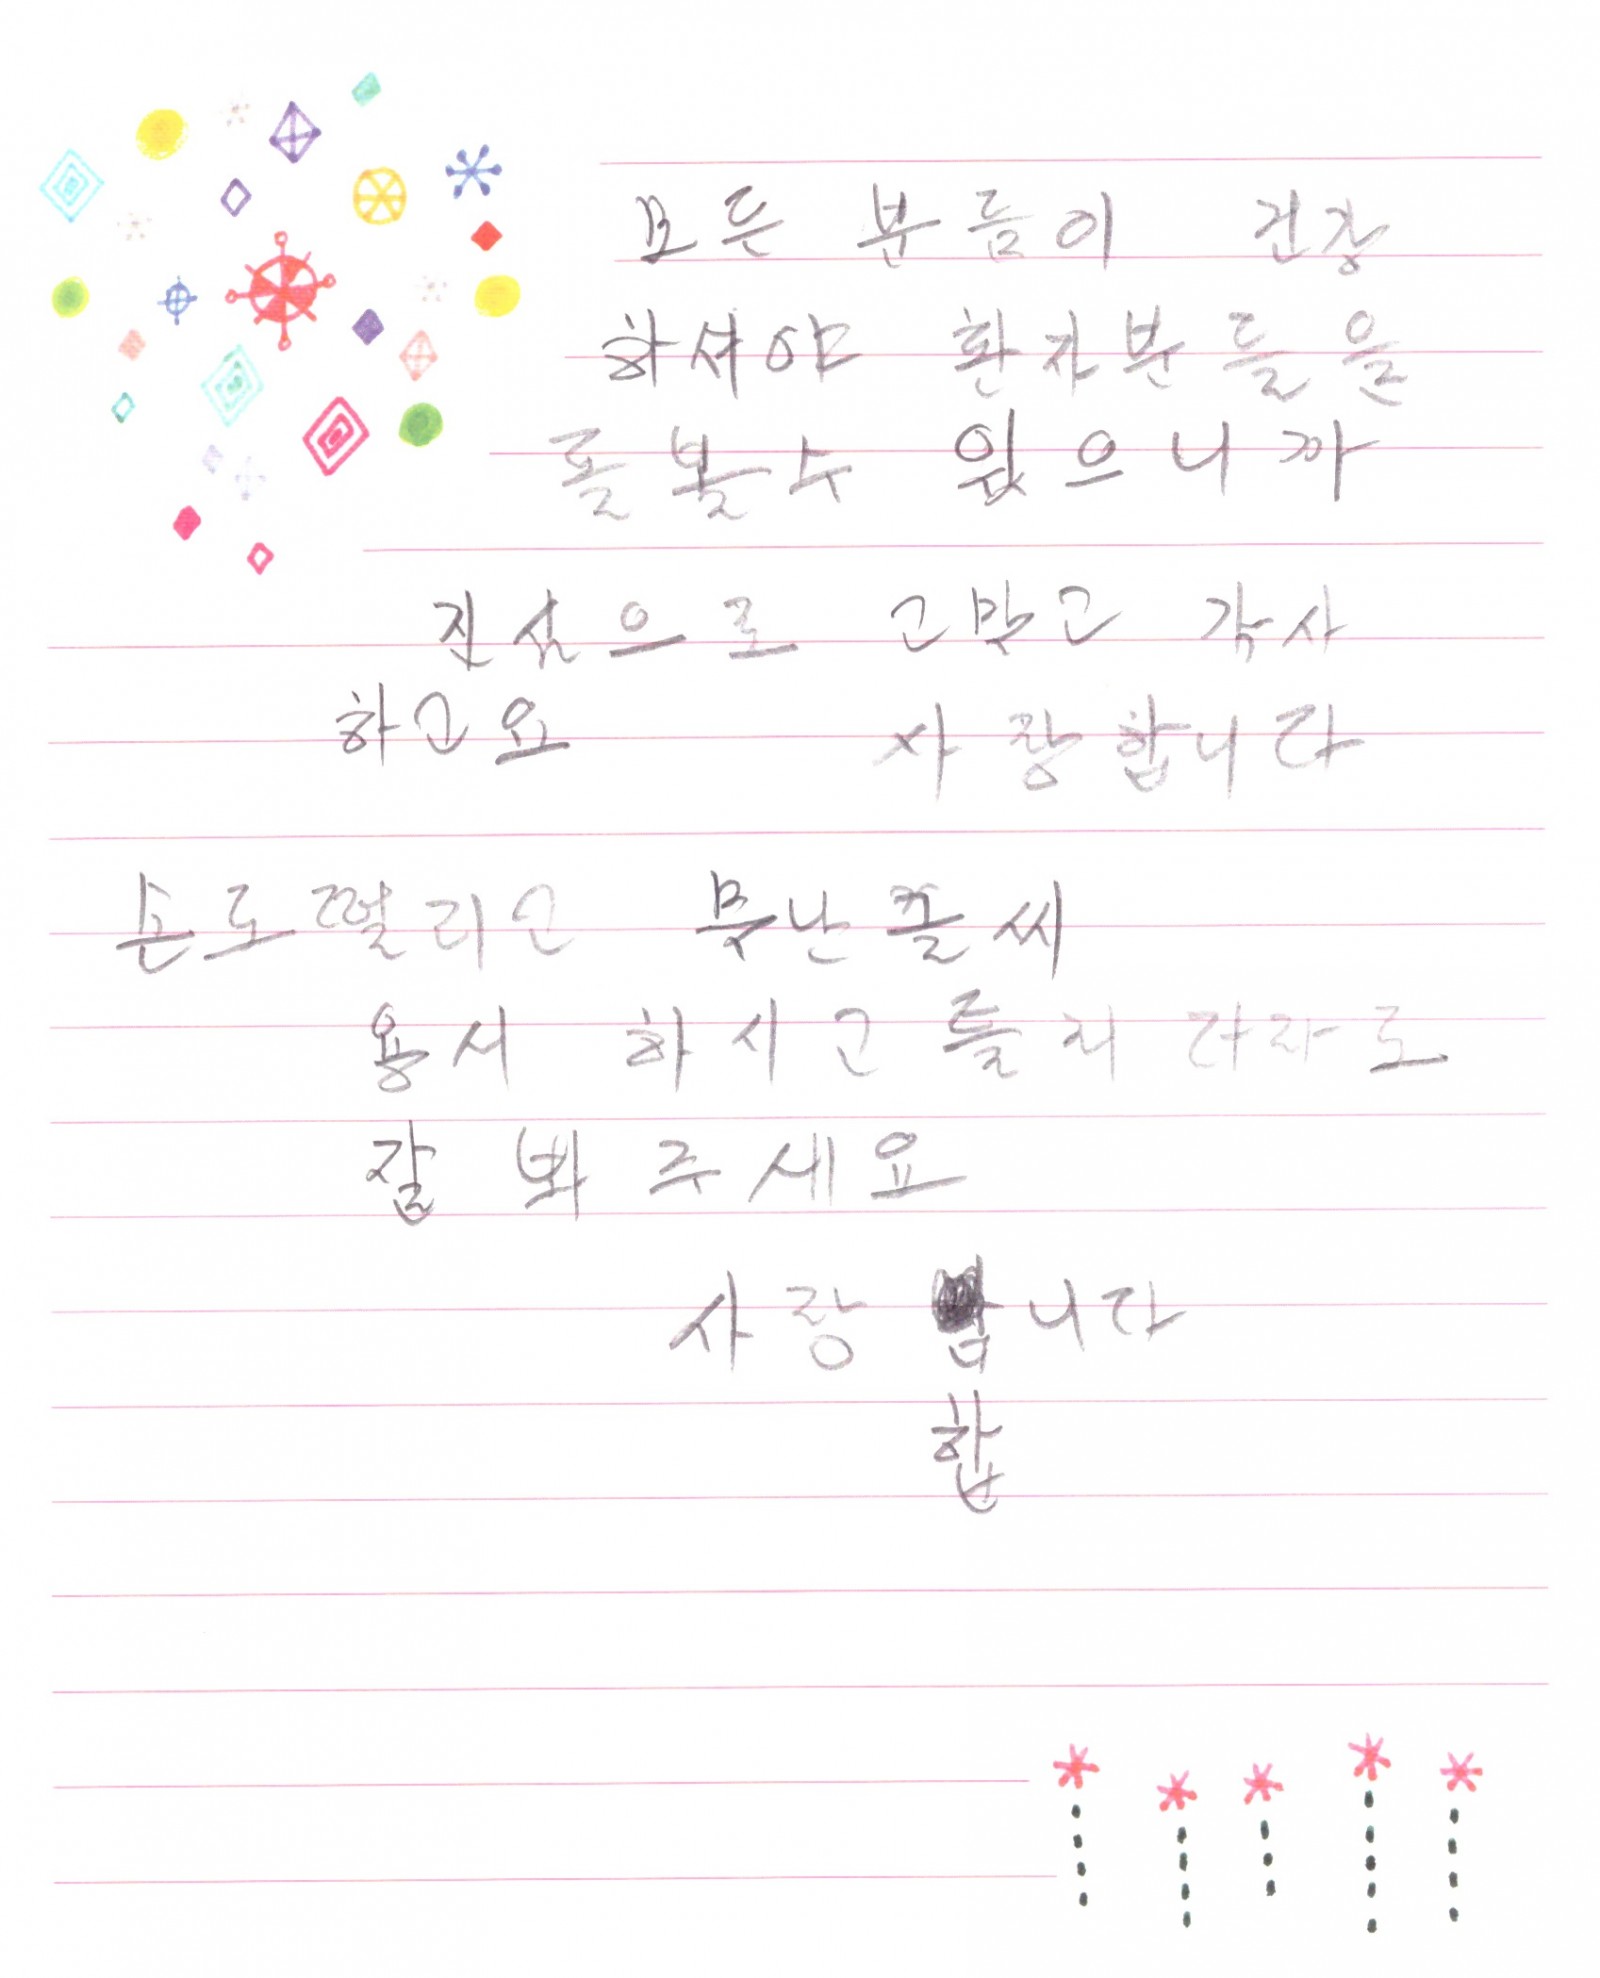 모든 분듬이 건강
하셔야 환자분들을
돌볼수 있으니까
진심으로 고맞고 감사
하고요 사랑합니다
손도떨리고 못난글씨
용서 하시고 틀려더라도
잘 봐 주세요
사랑 니다
합